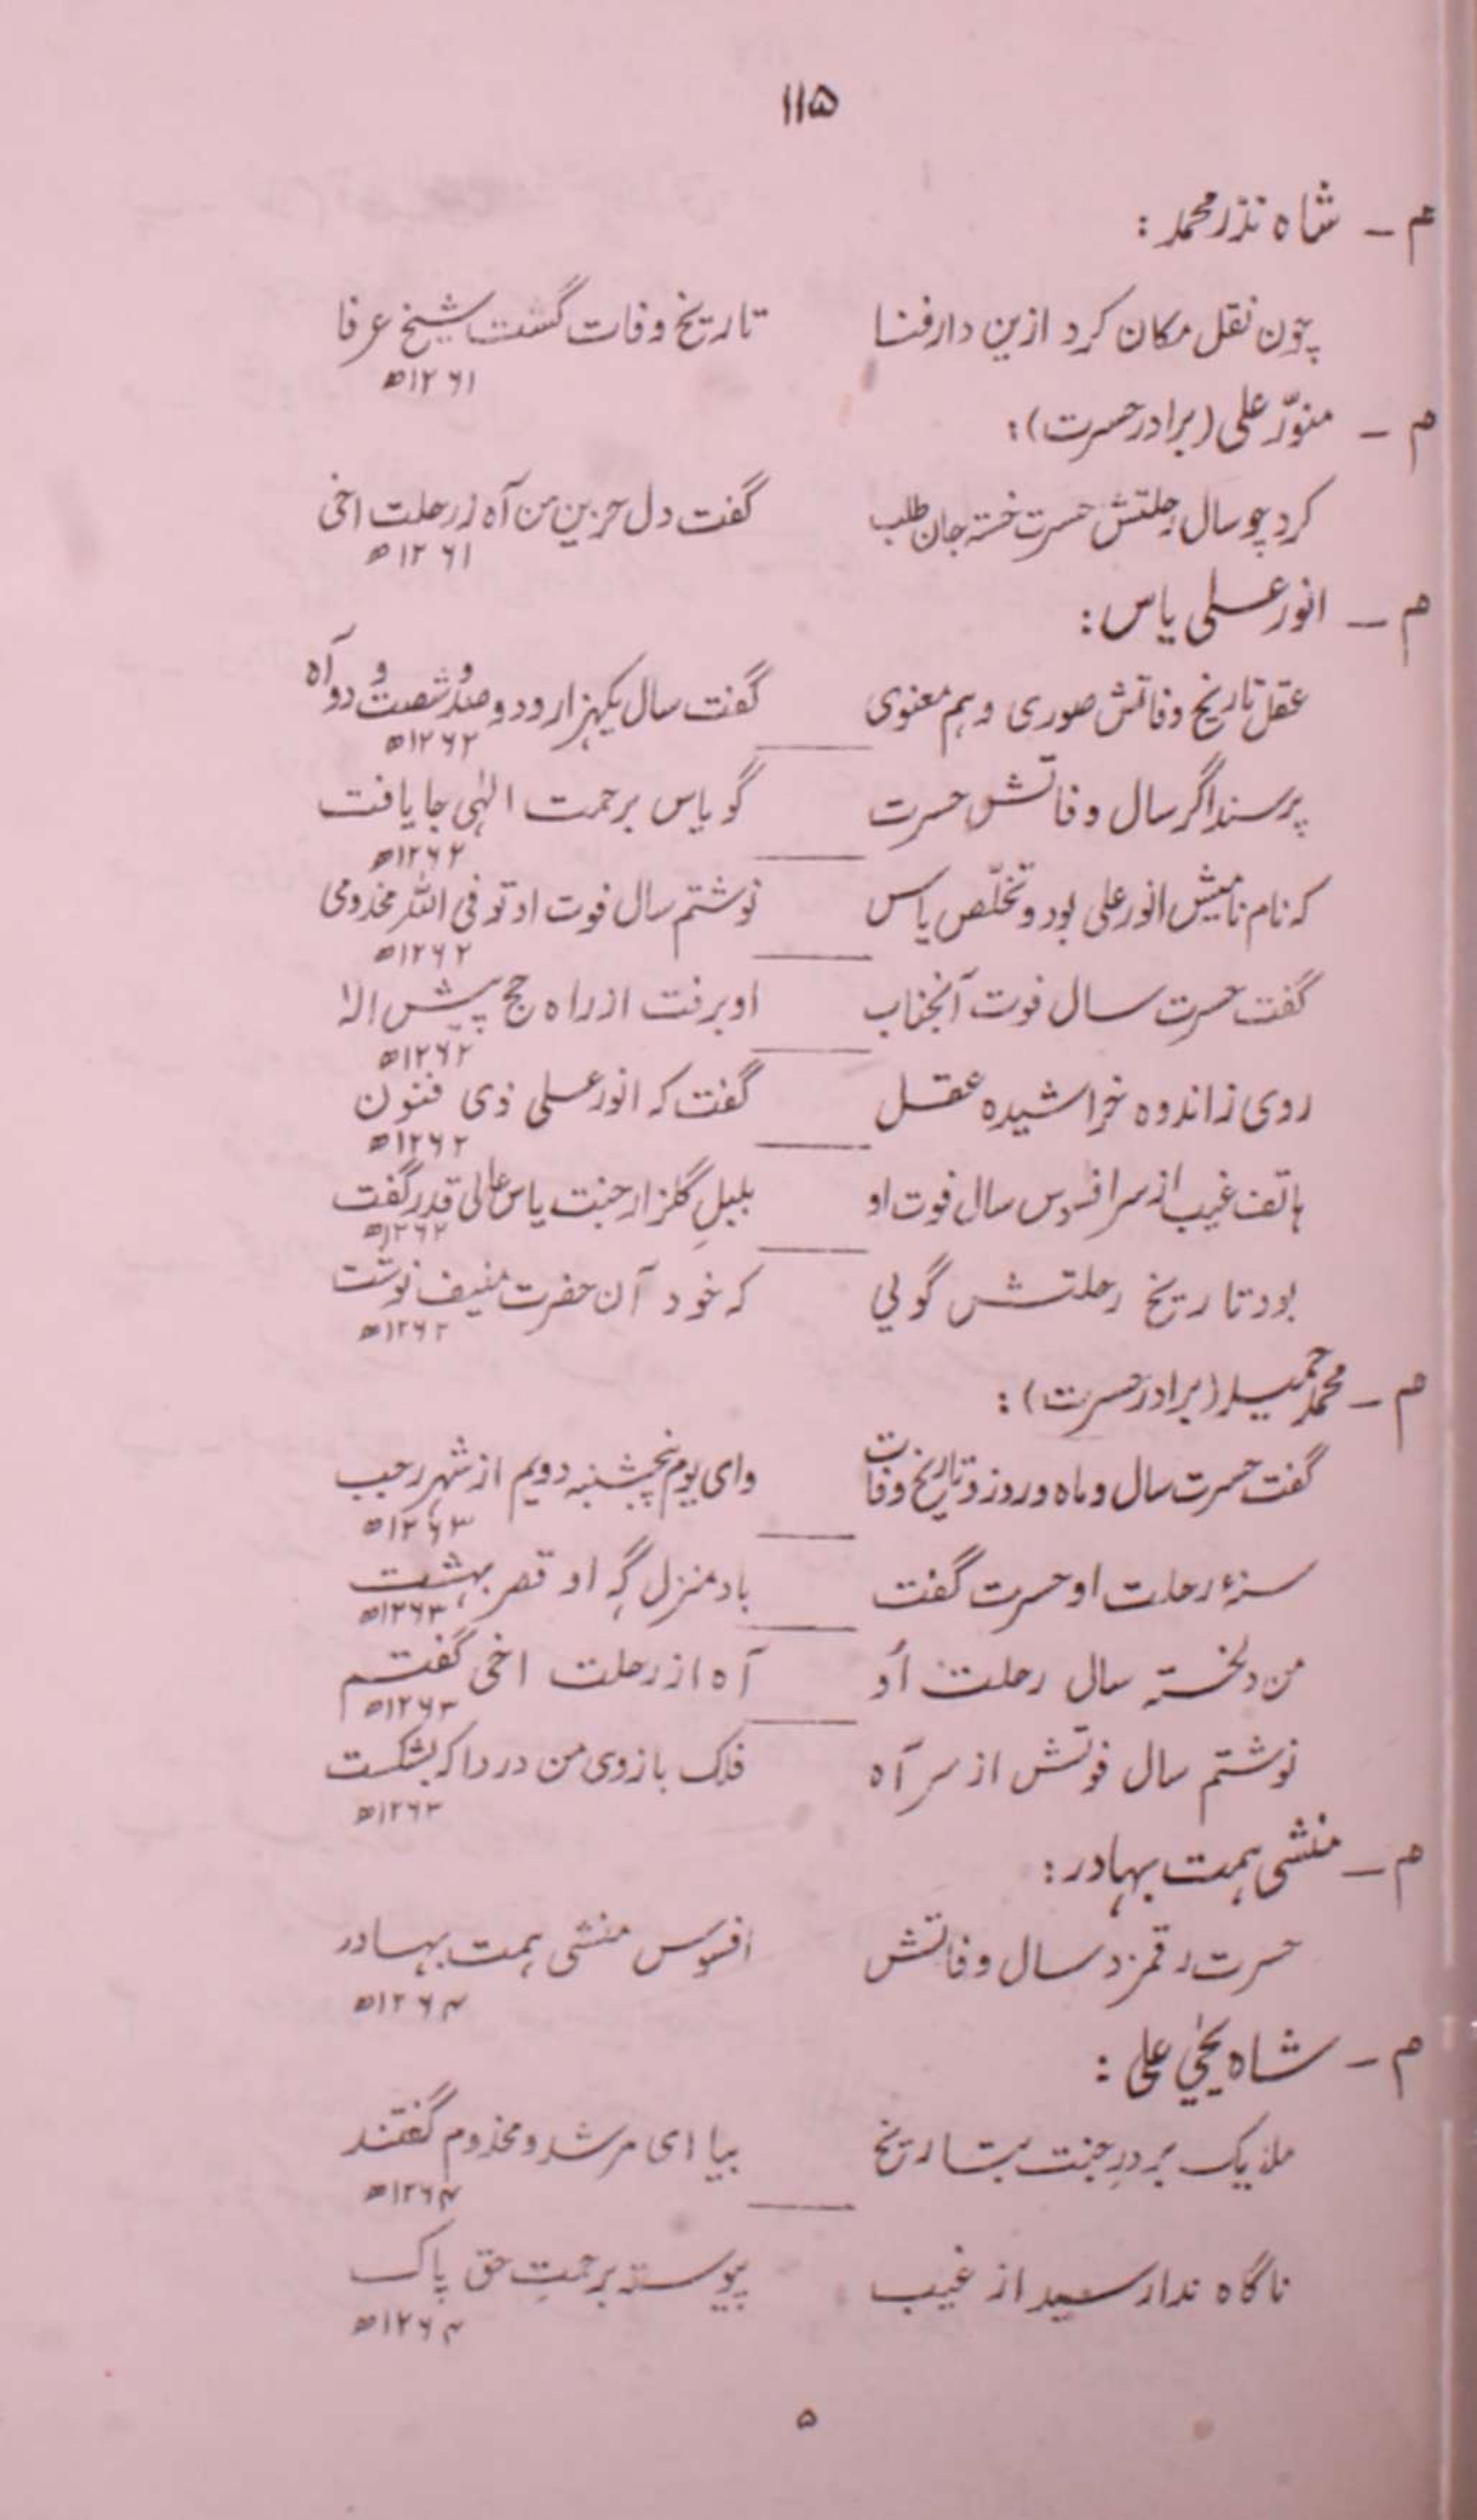 ۱۱۵
م ۔ شاہ نذر محمد :
چون نقل مکان کرد ازین دار فنا تاریخ وفات گشت شیخ عرفا
۱۲۶۱ھ
م ۔ منوّر علی (برادر حسرت) :
کرد چو سال رحلتش حسرت خستہ جان طلب گفت دل حزین من آہ ز رحلت اخی
۱۲۶۱ھ
م ۔ انور علی یاس :
عقل تاریخ وفاتش صوری و ہم معنوی گفت سال یکہزار و دو صد و شصت و دو آہ
۱۲۶۲ھ
پرسند اگر سال وفاتش حسرت گو یاس برحمت الٰہی جا یافت
۱۲۶۲ھ
کہ نام نامیش انور علی بود و تخلّص یاس نوشتم سال فوت او توفی اللہ مخدومی
۱۲۶۲ھ
گفت حسرت سال فوت آنجناب او برفت از راہ حج پیش الٰہ
۱۲۶۲ھ
روی ز اندوہ خراشیدہ عقل گفت کہ انور علی ذی فنون
۱۲۶۲ھ
ہاتف غیب از سر افسوس سال فوت او بلبلِ گلزار جنت یاس عالی قدر گفت
۱۲۶۲ھ
بود تاریخ رحلتش گوئی کہ خود آن حضرت منیف نوشت
۱۲۶۲ھ
م ۔ محمد حمید (برادر حسرت) :
گفت حسرت سال و ماہ و روز و تاریخ وفات وای یوم پنجشنبہ دویم از شہر رجب
۱۲۶۳ھ
سنۂ رحلت او حسرت گفت باد منزل گہ او قصر بہشت
۱۲۶۳ھ
من دلخستہ سال رحلت اُو آہ از رحلت اخی گفتم
۱۲۶۳ھ
نوشتم سال فوتش از سر آہ فلک بازوی من دردا کہ بشکست
۱۲۶۳ھ
م ۔ منشی ہمت بہادر :
حسرت رقمزد سال وفاتش افسوس منشی ہمت بہادر
۱۲۶۴ھ
م ۔ شاہ یحییٰ علی :
ملایک بر درِ جنت بتاریخ بیا ای مرشد و مخدوم گفتند
۱۲۶۴ھ
ناگاہ ندا رسید از غیب پیوستہ برحمتِ حق پاک
۱۲۶۴ھ
۵